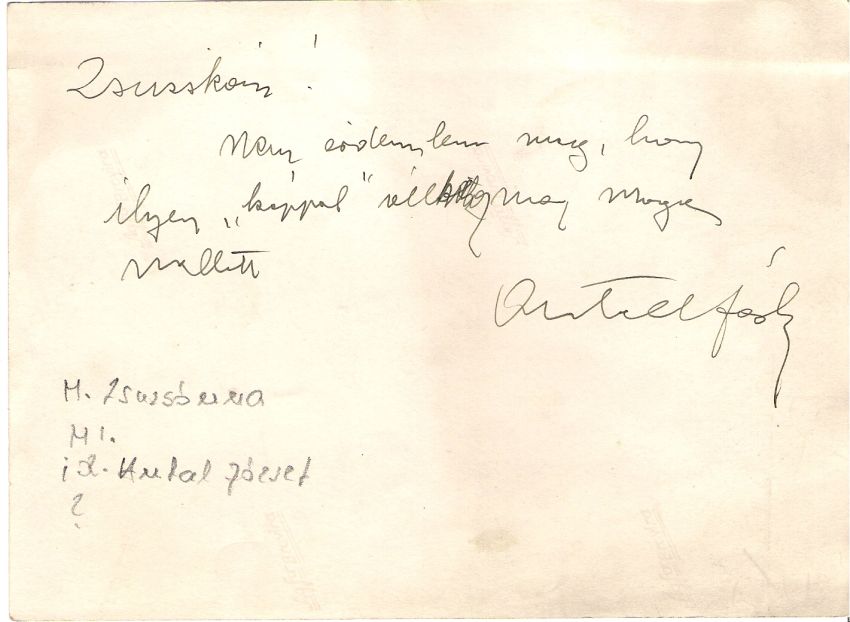 Zsuzskám!
Nem érdemlem meg, hogy
ilyen „képpel" áll maga
mellett
Antall József
M. Zsuzsánna
M I.
id. Antal József
?